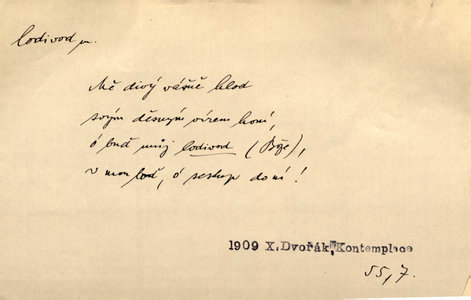 lodivod m.
Mě divý vášně hlod
svým děsným vírem honí,
ó buď můj lodivod (Bože),
v mou loď, ó sestup do ní!
1909 X.Dvořák, Kontemplace
55,7.